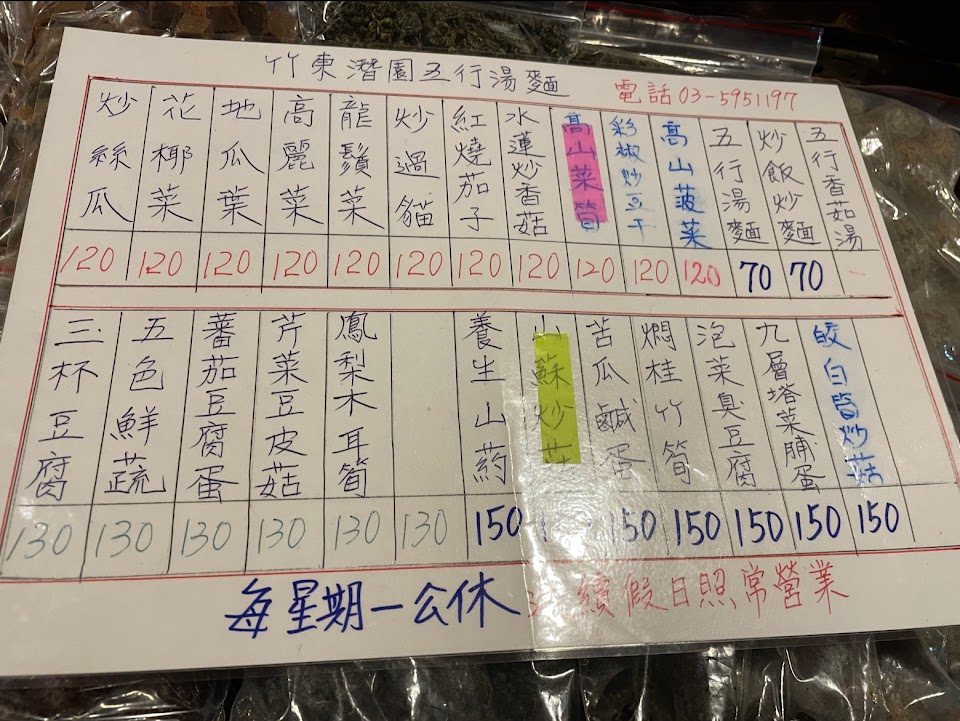 竹東潛園五行湯麵
電話 03-5951197
五行香茹湯
炒飯炒麵 70
五行湯麵 70
高山菠菜 120
彩椒炒豆干 120
高山菜筍 120
水蓮炒香菇 120
紅燒茄子 120
炒過貓 120
龍鬚菜 120
高麗菜 120
地瓜葉 120
花椰菜 120
炒絲瓜 120
皎白筍炒菇 150
九層塔菜脯蛋 150
泡菜臭豆腐 150
燜桂竹筍 150
苦瓜鹹蛋 150
山蘇炒菇
養生山葯 150
130
鳳梨木耳筍 130
芹菜豆皮菇 130
蕃茄豆腐蛋 130
五色鮮蔬 130
三杯豆腐 130
每星期一公休
續假日照常營業